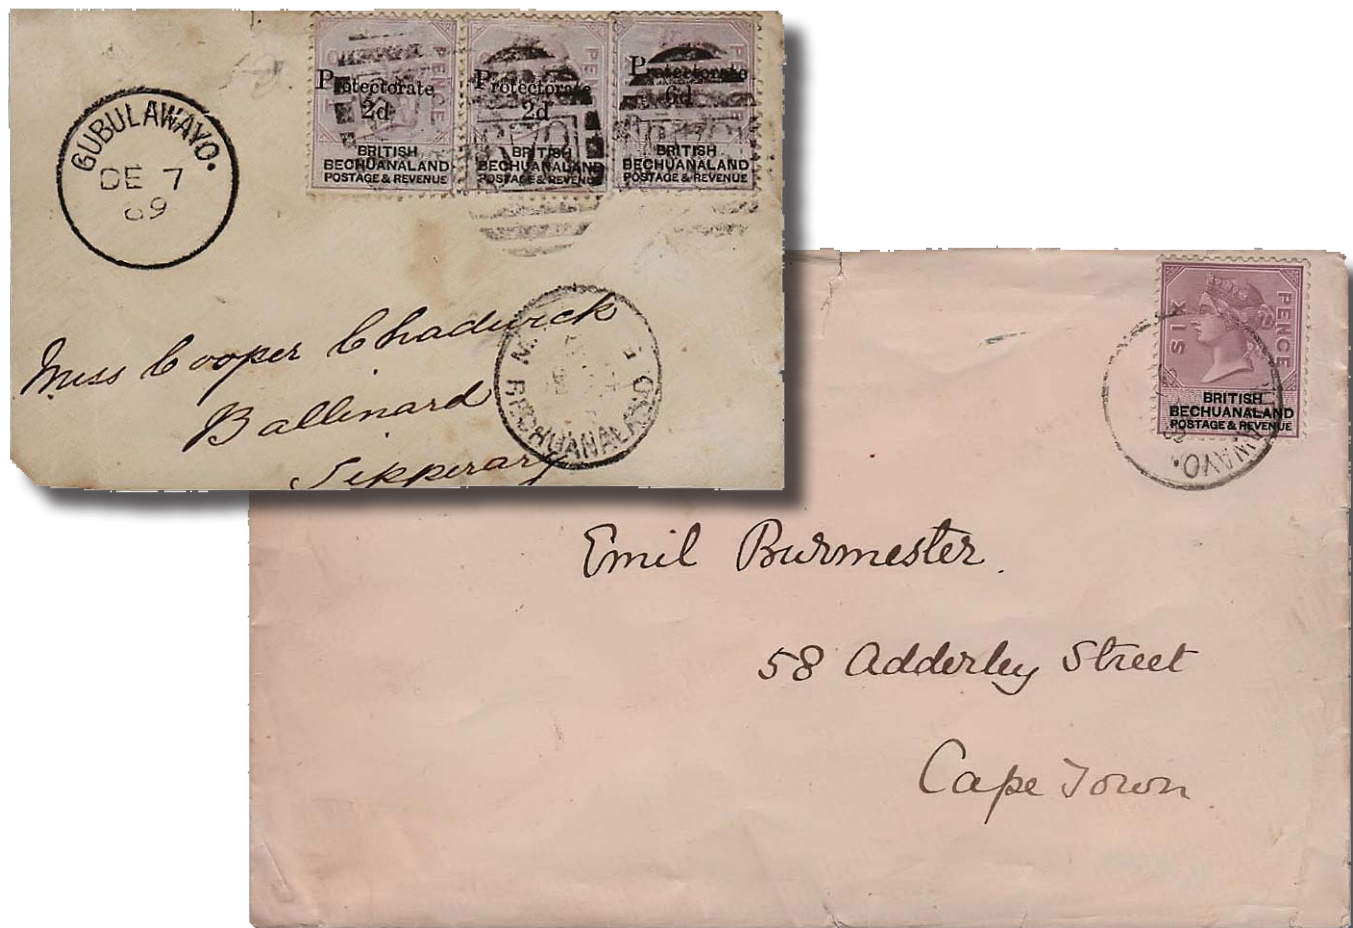 GUBULAWAYO.
DE 7
89
Protectorate
2d
PENCE
BRITISH
BECHUANALAND
POSTAGE & REVENUE
Protectorate
2d
BRITISH
BECHUANALAND
POSTAGE & REVENUE
Protectorate
6d
BRITISH
BECHUANALAND
POSTAGE & REVENUE
678
M.
BECHUANALAND
Miss Cooper Chadwick
Ballinard
Tipperary
SIX PENCE
BRITISH
BECHUANALAND
POSTAGE & REVENUE
AWAYO.
Emil Burmester.
58 Adderley Street
Cape Town